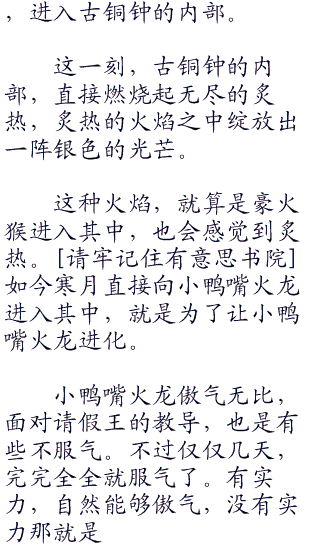 ，进入古铜钟的内部。
这一刻，古铜钟的内
部，直接燃烧起无尽的炙
热，炙热的火焰之中绽放出
一阵银色的光芒。
这种火焰，就算是豪火
猴进入其中，也会感觉到炙
热。[请牢记住有意思书院]
如今寒月直接向小鸭嘴火龙
进入其中，就是为了让小鸭
嘴火龙进化。
小鸭嘴火龙傲气无比，
面对请假王的教导，也是有
些不服气。不过仅仅几天，
完完全全就服气了。有实
力，自然能够傲气，没有实
力那就是